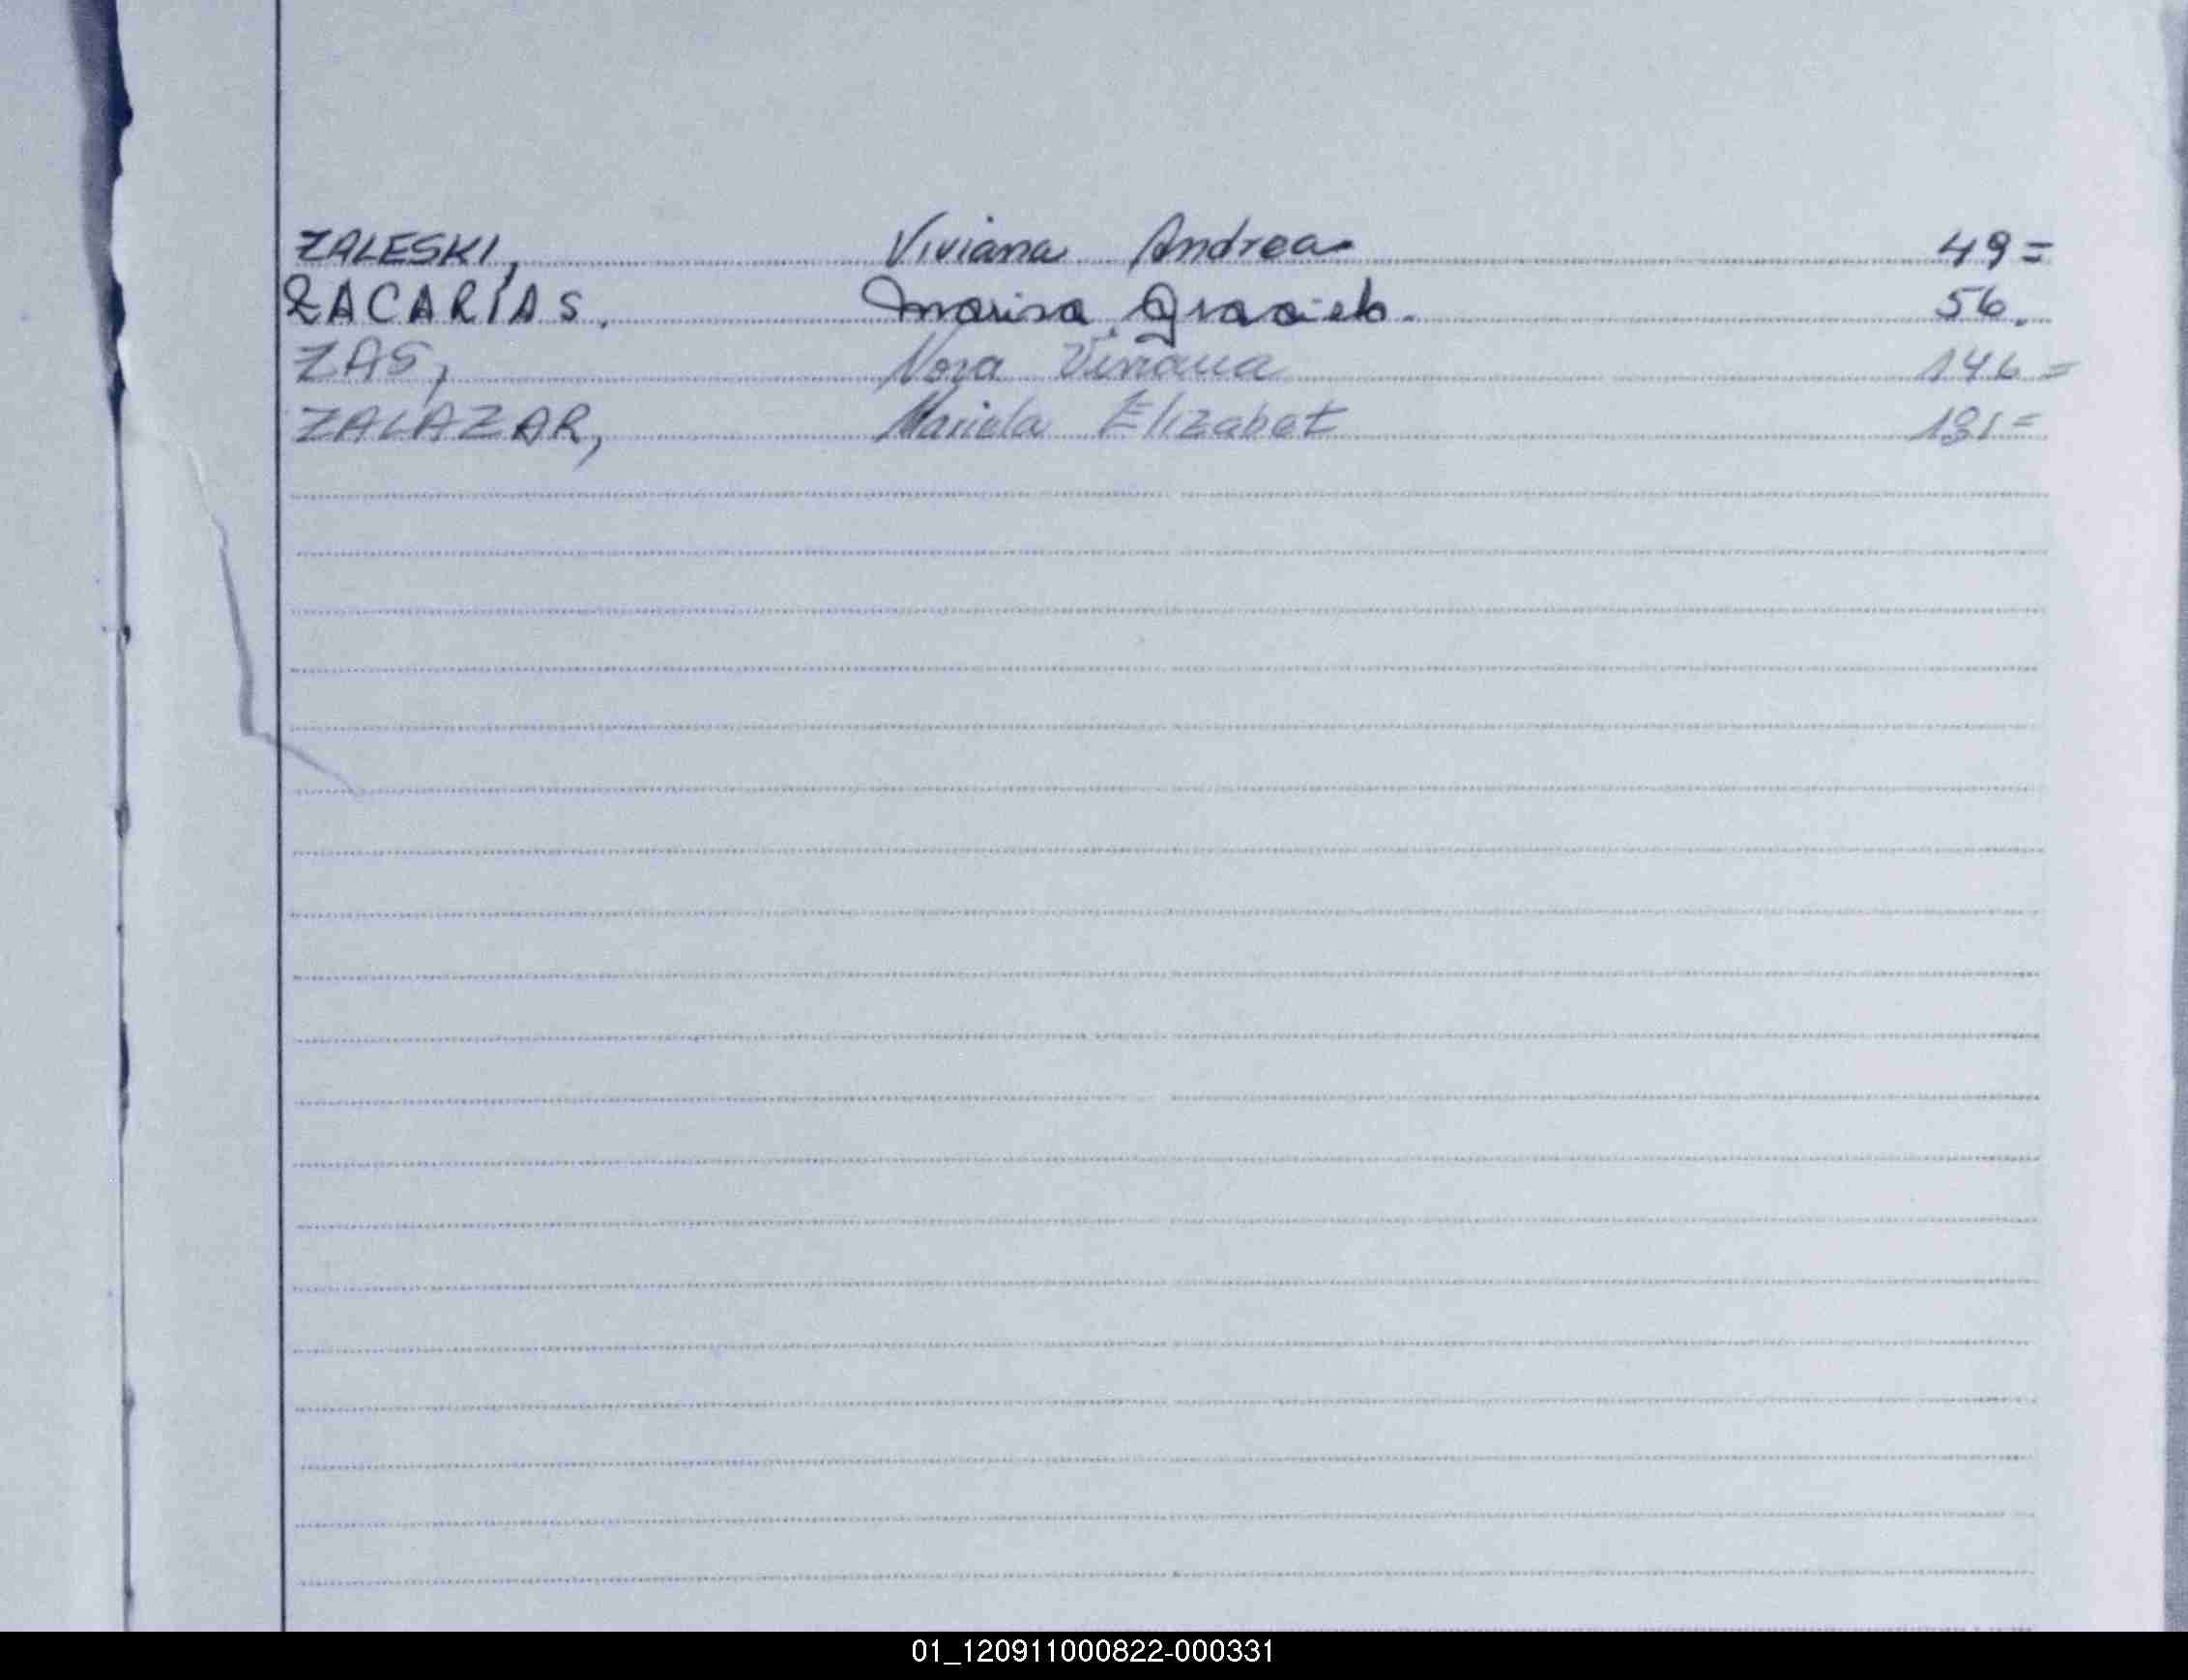 ZALESKI, Viviana Andrea 49=
ZACARÍAS. Marisa Graciela. 56.
ZAS, Nora Viviana 146=
ZALAZAR, Mariela Elizabet 131=
01_120911000822-000331